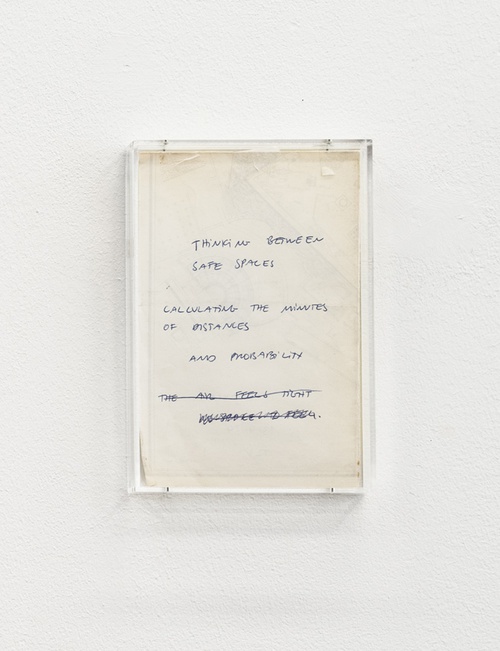 THINKING BETWEEN
SAFE SPACES
CALCULATING THE MINUTES
OF DISTANCES
AND PROBABILITY
THE AIR FEELS TIGHT